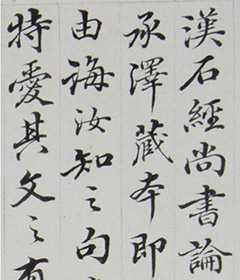 漢石經尚書論
承澤藏本即
由誨汝知之句
特愛其文之有